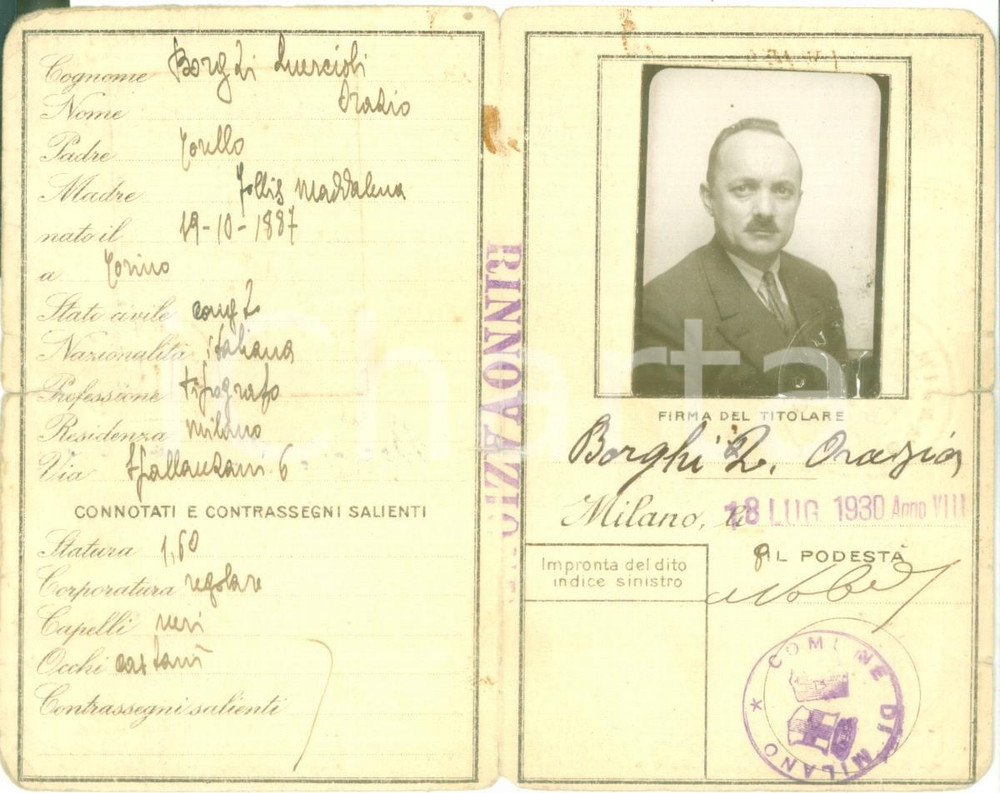 Cognome Borghi Luscioli
Nome Orazio
Padre Torello
Madre Follis Maddalena
nato il 19-10-1887
a Torino
Stato civile coniug
Nazionalità italiana
Professione tipografo
Residenza Milano
Via Spallanzani 6
CONNOTATI E CONTRASSEGNI SALIENTI
Statura 1,60
Corporatura regolare
Capelli neri
Occhi castani
Contrassegni salienti
RINNOVAZIONE
FIRMA DEL TITOLARE
Borghi L. Orazio
Milano, li 18 LUG 1930 Anno VIII
IL PODESTÀ
Impronta del dito
indice sinistro
COMUNE DI MILANO
Charta